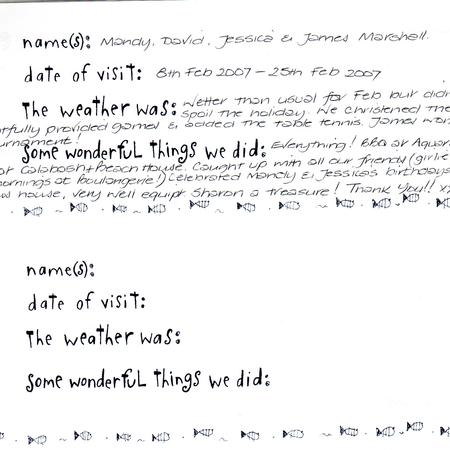 name(s): Mandy, David, Jessica & James Marshall.
date of visit: 8th Feb 2007 – 25th Feb 2007
The weather was: Wetter than usual for Feb but didn
spoil the holiday. We christened the
tfully provided games & added the table tennis. James won
urnament!
Some wonderful things we did: Everything! BBQ at Aquar
Calabash + Beach House. Caught up with all our friends (girlie
ornings at boulangerie!) Celebrated Mandy & Jessica's birthdays
house, very well equipt. Sharon a treasure! Thank you!! x
name(s):
date of visit:
The weather was:
Some wonderful things we did: